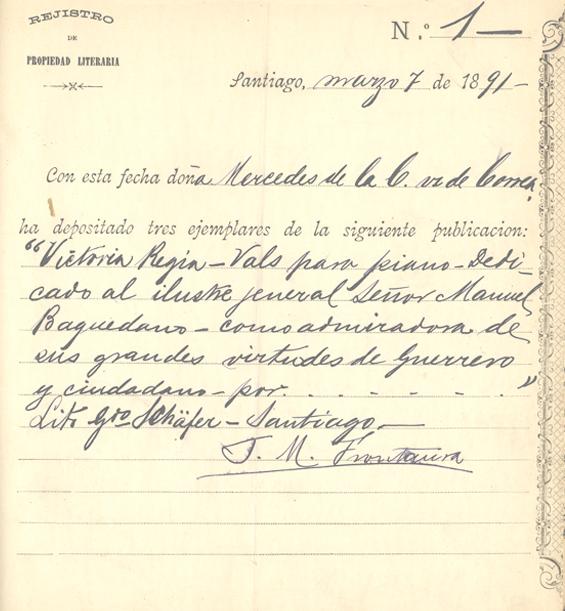 REJISTRO
DE
PROPIEDAD LITERARIA
N.º 1—
Santiago, marzo 7 de 1891-
Con esta fecha doña Mercedes de la C. v. de Correa
ha depositado tres ejemplares de la siguiente publicacion:
"Victoria Regia - Vals para piano - Dedi-
cado al ilustre jeneral Señor Manuel
Baquedano - como admiradora de
sus grandes virtudes de Guerrero
y ciudadano - por. . . . . . . . "
Lito gto Schäfer - Santiago -
J. M. Frontaura